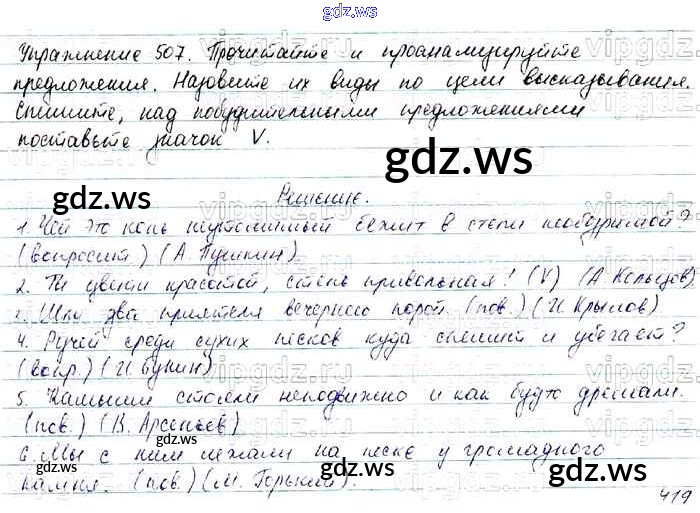 gdz.ws
Упражнение 507. Прочитайте и проанализируйте
предложения. Назовите их виды по цели высказывания.
Спишите, над побудительными предложениями
поставьте значок V.
gdz.ws
Решение.
1. Чей это конь неутомимый бежит в степи необозримой?
(вопросит.) (А. Пушкин)
2. Ты цвети красотой, степь привольная! (V) (А. Кольцов)
3. Шли два приятеля вечернею порой. (пов.) (И. Крылов)
4. Ручей среди сухих песков куда спешит и убегает?
(вопр.) (И. Бунин)
5. Камыши стояли неподвижно и как будто дремали.
(пов.) (В. Арсеньев)
6. Мы с ним лежали на песке у громадного
камня. (пов.) (М. Горький).
419
gdz.ws